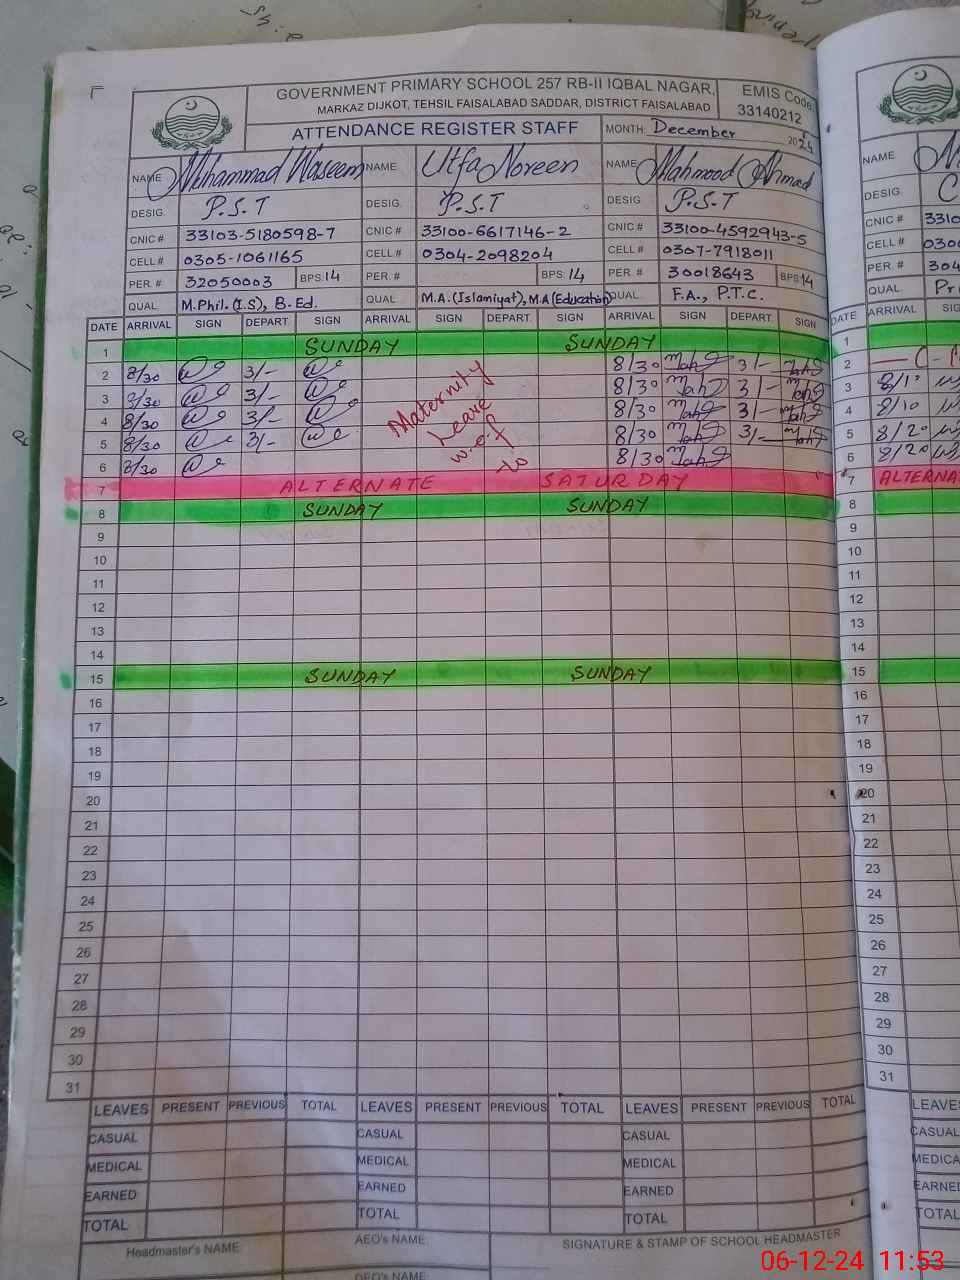 GOVERNMENT PRIMARY SCHOOL 257 RB-II IQBAL NAGAR,
MARKAZ DIJKOT, TEHSIL FAISALABAD SADDAR, DISTRICT FAISALABAD
EMIS Code
33140212
ATTENDANCE REGISTER STAFF
MONTH: December 2024
NAME Muhammad Waseem NAME Utfa Noreen NAME Mahmood Ahmad NAME
DESIG. P.S.T DESIG. P.S.T DESIG. P.S.T DESIG.
CNIC # 33103-5180598-7 CNIC # 33100-6617146-2 CNIC # 33100-4592943-5 CNIC #
CELL # 0305-1061165 CELL # 0304-2098204 CELL # 0307-7918011 CELL #
PER. # 32050003 BPS: 14 PER. # BPS: 14 PER. # 30018643 BPS: 14 PER. #
QUAL M.Phil.(I.S), B.Ed. QUAL M.A.(Islamiyat), M.A(Education) QUAL F.A., P.T.C. QUAL
DATE ARRIVAL SIGN DEPART. SIGN ARRIVAL SIGN DEPART. SIGN ARRIVAL SIGN DEPART. SIGN DATE ARRIVAL
1 SUNDAY SUNDAY 1
2 8/30 3/- 8/30 3/- 2
3 8/30 3/- 8/30 3/- 3 8/10
4 8/30 3/- 8/30 3/- 4 8/10
5 8/30 3/- 8/30 3/- 5 8/20
6 8/30 8/30 6 8/20
Maternity
Leave
w.e.f
7 ALTERNATE SATURDAY 7
8 SUNDAY SUNDAY 8
9 9
10 10
11 11
12 12
13 13
14 14
15 SUNDAY SUNDAY 15
16 16
17 17
18 18
19 19
20 20
21 21
22 22
23 23
24 24
25 25
26 26
27 27
28 28
29 29
30 30
31 31
LEAVES PRESENT PREVIOUS TOTAL LEAVES PRESENT PREVIOUS TOTAL LEAVES PRESENT PREVIOUS TOTAL
CASUAL CASUAL CASUAL CASUAL
MEDICAL MEDICAL MEDICAL
EARNED EARNED EARNED EARNED
TOTAL TOTAL TOTAL TOTAL
Headmaster's NAME AEO's NAME SIGNATURE & STAMP OF SCHOOL HEADMASTER
DEO's NAME
06-12-24 11:53